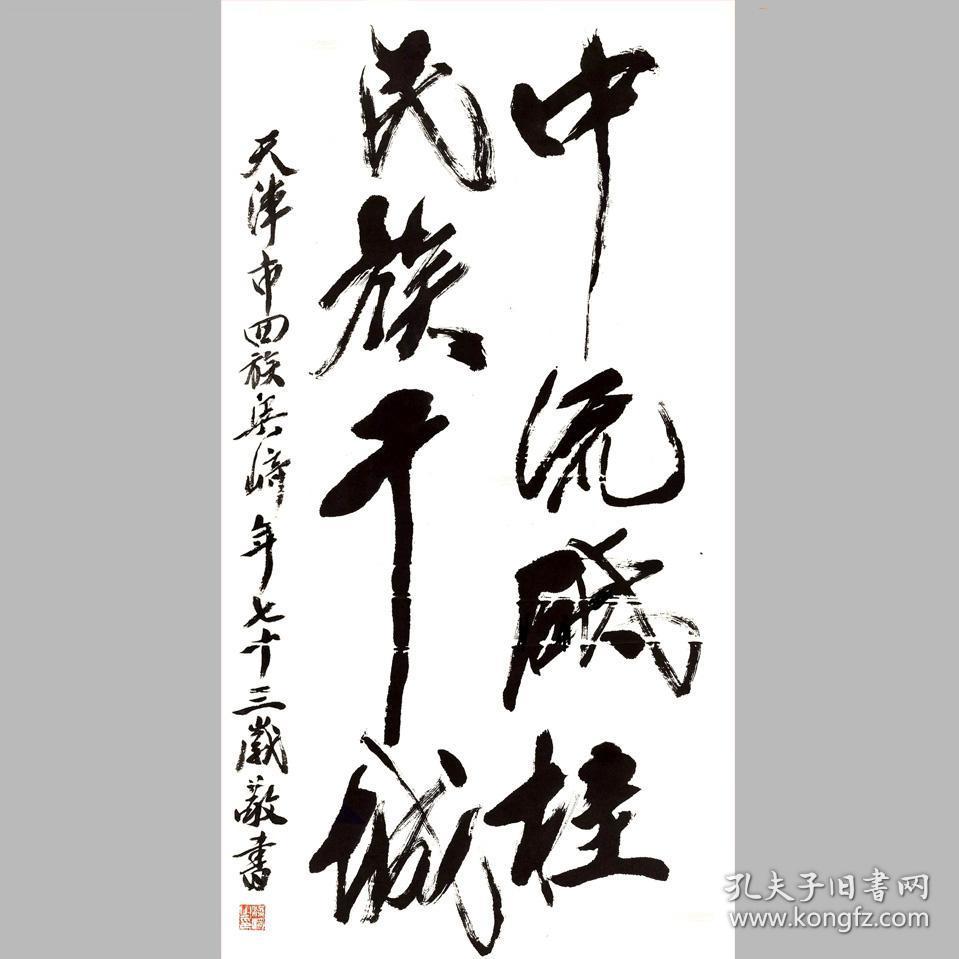 中流砥柱
民族干城
天津市回族吳年七十三歲敬書
孔夫子旧书网
www.kongfz.com